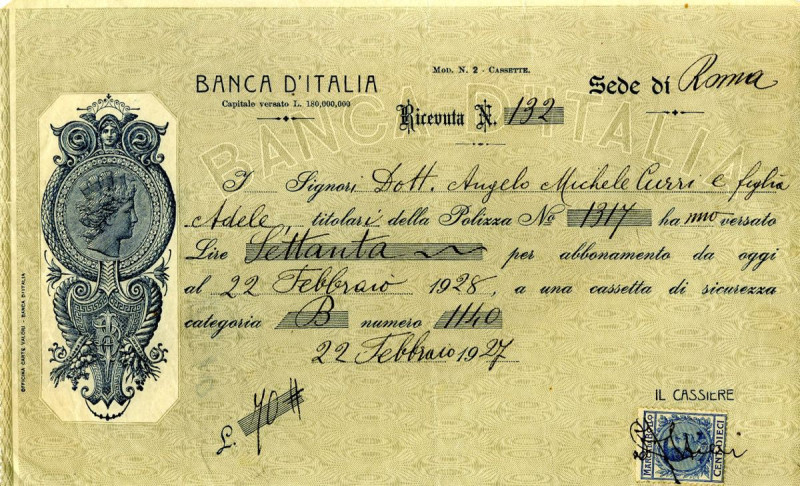 Mod. N. 2 - Cassette.
BANCA D'ITALIA
Capitale versato L. 180,000,000
Sede di Roma
Ricevuta N. 132
BANCA D'ITALIA
I Signori Dott. Angelo Michele Curri e figlia
Adele, titolari della Polizza No 1317 hanno versato
Lire Settanta per abbonamento da oggi
al 22 Febbraio 1928, a una cassetta di sicurezza
categoria B numero 1140
22 Febbraio 1927
£. 70
IL CASSIERE
MARCA DA BOLLO
CENT. DIECI
OFFICINA CARTE VALORI - BANCA D'ITALIA